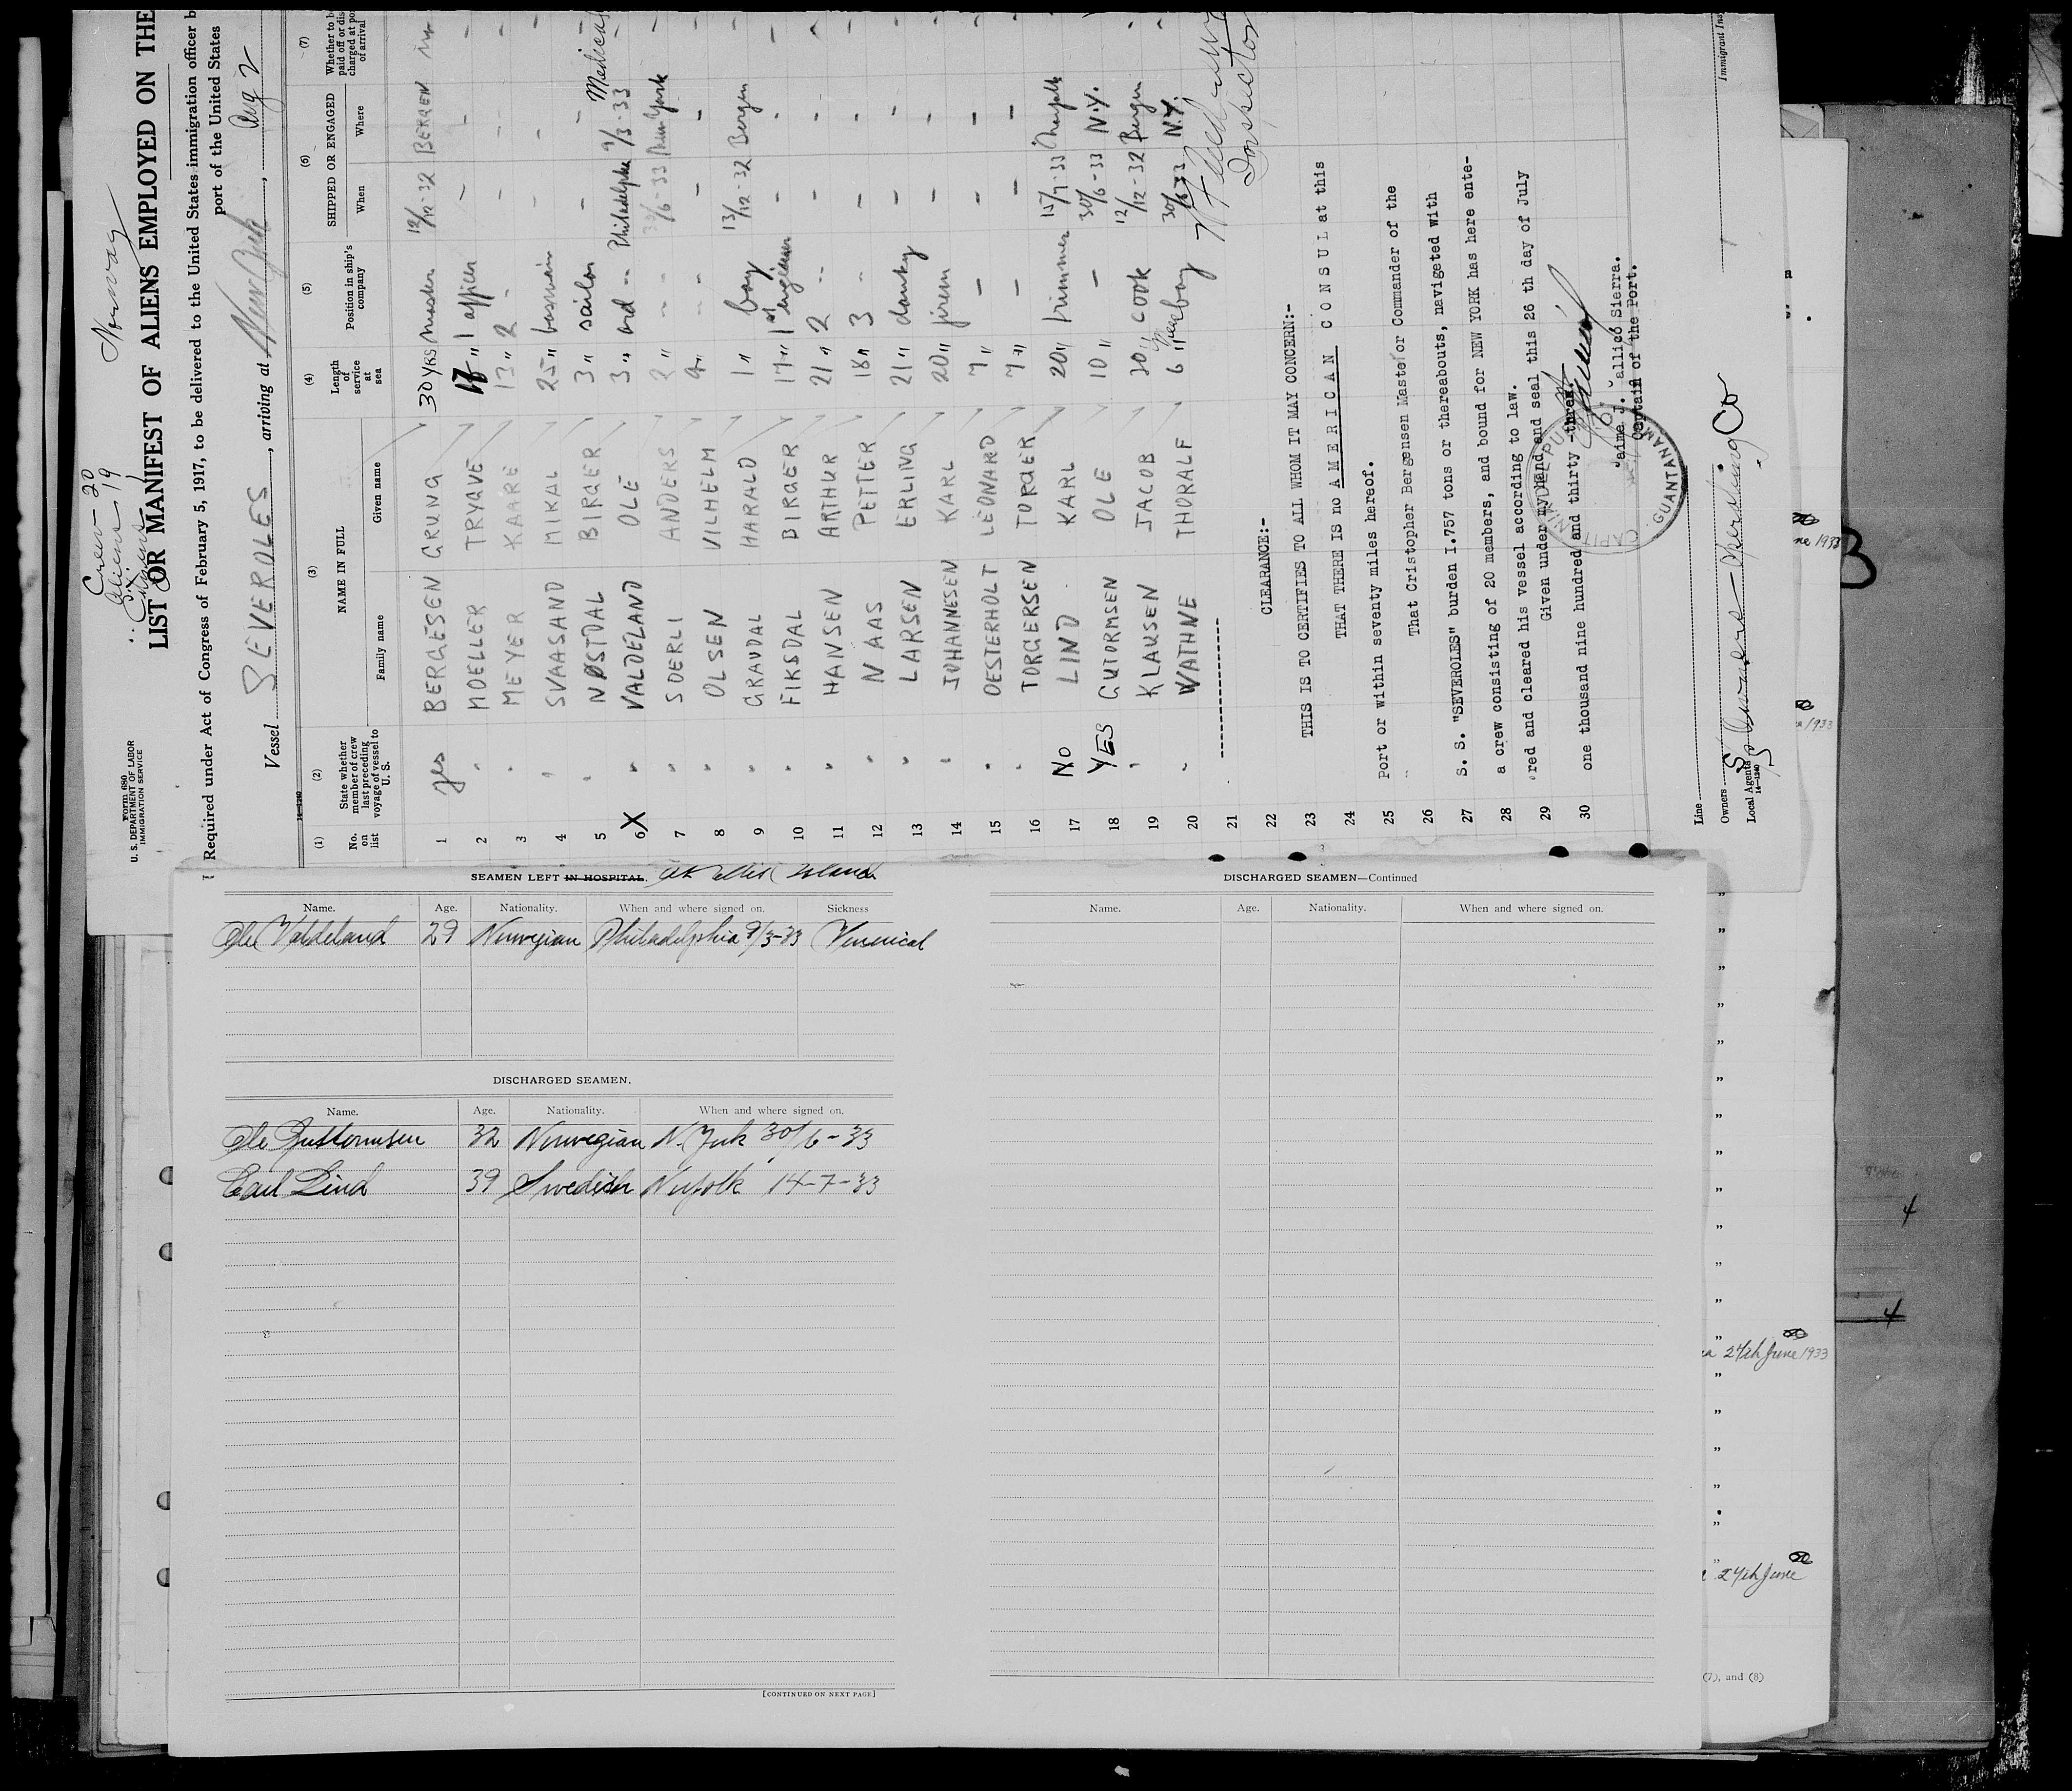 Norway
Crew - 20
Aliens 19
Form 680
U. S. DEPARTMENT OF LABOR
IMMIGRATION SERVICE
LIST OR MANIFEST OF ALIENS EMPLOYED ON THE
Required under Act of Congress of February 5, 1917, to be delivered to the United States immigration officer b
port of the United States
Vessel SEVEROLES, arriving at New York, Aug 2
14-1240
(1) (2) (3) (4) (5) (6) (7)
No. on list
State whether member of crew last preceding voyage of vessel to U. S.
NAME IN FULL
Family name Given name
Length of service at sea
Position in ship's company
SHIPPED OR ENGAGED
When Where
Whether to be paid off or discharged at port of arrival
1 yes BERGESEN GRUNG 30 YRS Master 12/12-32 BERGEN no
2 " MOELLER TRYGVE " 1 officer - - -
3 " MEYER KAARE 13 " 2 - - - -
4 " SVAASAND MIKAL 25 " boswain - - -
5 " NØSTDAL BIRGER 3 " sailor - - -
6 X " VALDELAND OLE 3 " ord - Philadelphia 9/3-33 Medical
7 " SOERLI ANDERS 2 " - - 30/6-33 New York -
8 " OLSEN VILHELM 4 " - - - - -
9 " GRAVDAL HARALD 1 " boy 13/12-32 Bergen -
10 " FIKSDAL BIRGER 17 " 1st engineer - - -
11 " HANSEN ARTHUR 21 " 2 - - - -
12 " NAAS PETTER 18 " 3 - - - -
13 " LARSEN ERLING 21 " donkey - - -
14 " JOHANNESEN KARL 20 " firem - - -
15 " OESTERHOLT LEONARD 7 " - - - -
16 " TORGERSEN TORGER 7 " - - - -
17 NO LIND KARL 20 " trimmer 15/7-33 -
18 YES GUTORMSEN OLE 10 " - 30/6-33 N.Y. -
19 " KLAUSEN JACOB 30 " cook 12/12-32 Bergen -
20 " WATHNE THORALF 6 " boy 30/6-33 N.Y.
21 --------------------
Inspector
22 CLEARANCE:-
23 THIS IS TO CERTIFIES TO ALL WHOM IT MAY CONCERN:-
24 THAT THERE IS no AMERICAN CONSUL at this
25 Port or within seventy miles hereof.
26 That Cristopher Bergensen Master or Commander of the
27 S. S. "SEVEROLES" burden I.757 tons or thereabouts, navigeted with
28 a crew consisting of 20 members, and bound for NEW YORK has here ente-
red and cleared his vessel according to law.
29 Given under my hand and seal this 26 th day of July
30 one thousand nine hundred and thirty -three.
GUANTANAM
Captain of the Port.
Line
Owners
Local Agents
14-1240
Immigrant Ins
SEAMEN LEFT IN HOSPITAL. at Ellis Island
Name. Age. Nationality. When and where signed on. Sickness
Ole Valdeland 29 Norwegian Philadelphia 9/3-33 Venerical
DISCHARGED SEAMEN.
Name. Age. Nationality. When and where signed on.
Ole Guttormsen 32 Norwegian N. York 30/6-33
Carl Lind 39 Swedish Norfolk 14-7-33
[CONTINUED ON NEXT PAGE]
DISCHARGED SEAMEN—Continued
Name. Age. Nationality. When and where signed on.
ne 1933
1933
24th June 1933
24th June
(7), and (8)
3
4
4